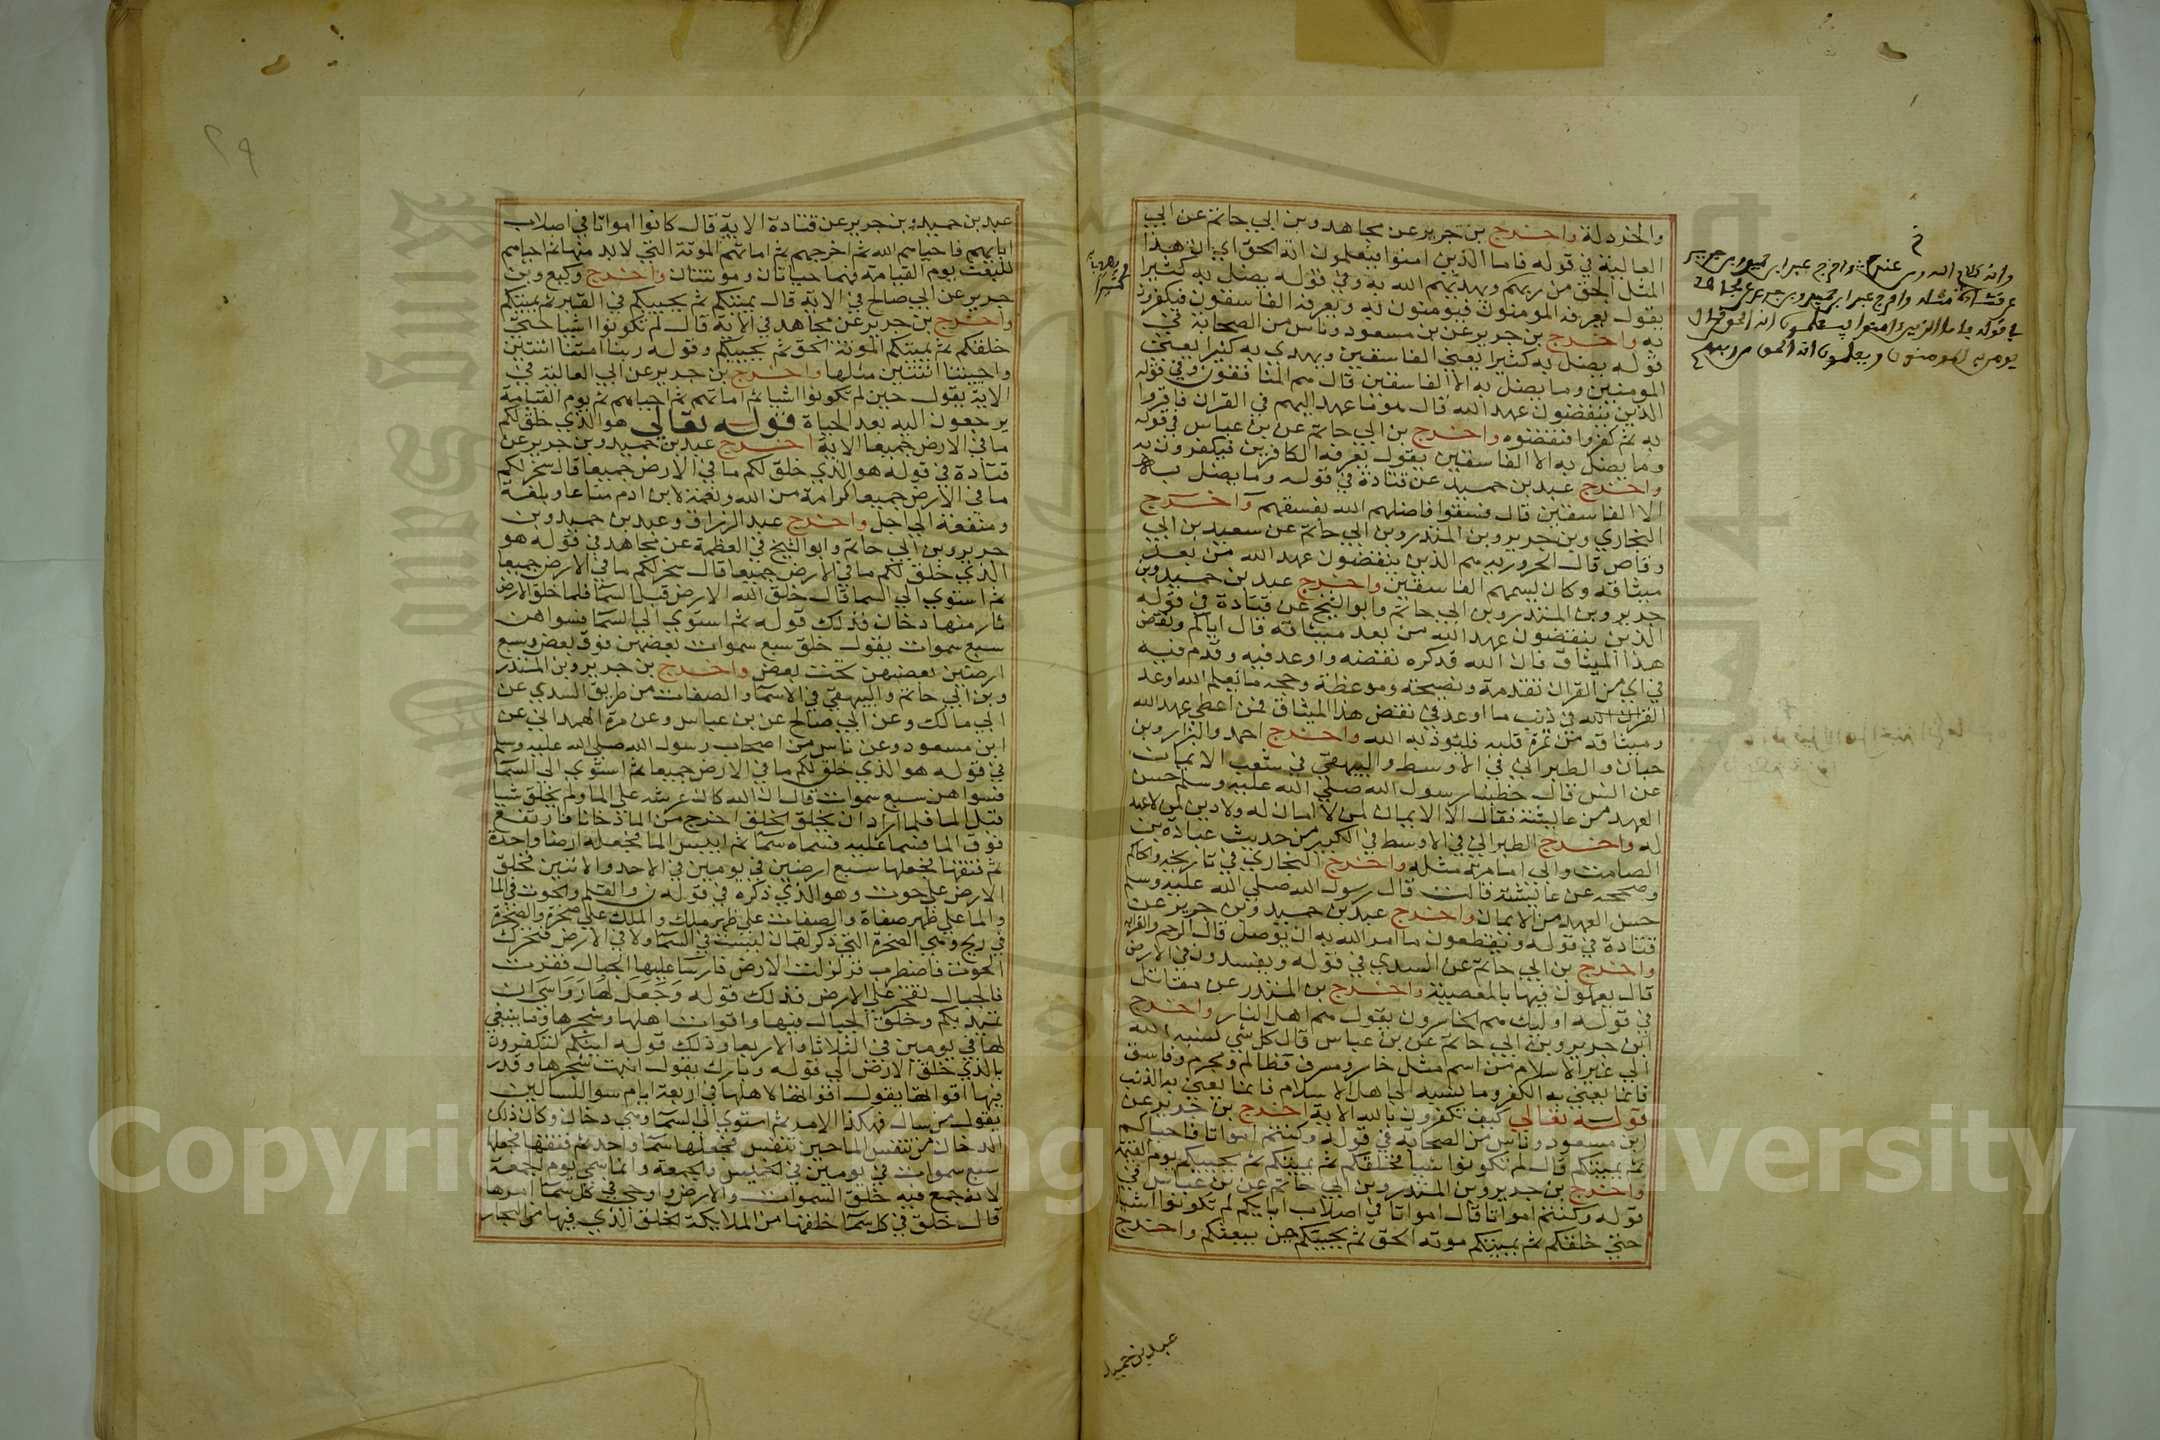 والخردلة واخرج بن جرير عن مجاهد وبن ابي حاتم عن ابي
العالية في قوله فاما الذين امنوا فيعلمون انه الحق اي ان هذا
المثل الحق من ربهم ويهديهم الله به وفي قوله يضل به كثيرا
يقول يعرفه المومنون فيومنون به ويعرفه الفاسقون فيكفرون
به واخرج بن جرير عن بن مسعود وناس من الصحابة في
قوله يضل به كثيرا يعني الفاسقين ويهدي به كثيرا يعني
المومنين وما يضل به الا الفاسقين قال هم المنافقون وفي قوله
الذين ينقضون عهد الله قال هو ما عهد اليهم في القران فاقروا
به ثم كفروا فنقضوه واخرج بن ابي حاتم عن بن عباس في قوله
وما يضل به الا الفاسقين يقول يعرفه الكافرون فيكفرون به
واخرج عبد بن حميد عن قتادة في قوله وما يضل به
الا الفاسقين قال فسقوا فاضلهم الله بفسقهم واخرج
البخاري وبن جرير وبن المنذر وبن ابي حاتم عن سعيد بن ابي
وقاص قال الحرورية هم الذين ينقضون عهد الله من بعد
ميثاقه وكان يسميهم الفاسقين واخرج عبد بن حميد وبن
جرير وبن المنذر وبن ابي حاتم وابو الشيخ عن قتادة في قوله
الذين ينقضون عهد الله من بعد ميثاقه قال اياكم ونقض
هذا الميثاق فان الله قد كره نقضه واوعد فيه وقدم فيه
في اي من القران تقدمة ونصيحة وموعظة وحجة ما نعلم الله اوعد
القران الله في ذنب ما اوعد في نقض هذا الميثاق فمن اعطي عهد الله
وميثاقه من ثمرة قلبه فليوف به الله واخرج احمد والبزار وبن
حبان والطبراني في الاوسط والبيهقي في شعب الايمان
عن انس قال خطبنا رسول الله صلي الله عليه وسلم حسن
العهد من عايشة فقال الا لا ايمان لمن لا امان له ولا دين لمن لا عهد
له واخرج الطبراني في الاوسط في الكبير من حديث عبادة بن
الصامت وابي امامة مثله واخرج البخاري في تاريخه والحاكم
وصححه عن عايشة قالت قال رسول الله صلي الله عليه وسلم
حسن العهد من الايمان واخرج عبد بن حميد وبن جرير عن
قتادة في قوله ويقطعون ما امر الله به ان يوصل قال الرحم والقرابه
واخرج بن ابي حاتم عن السدي في قوله ويفسدون في الارض
قال يعملون فيها بالمعصية واخرج بن المنذر عن مقاتل
في قوله اوليك هم الخاسرون يقول هم اهل النار واخرج
ابن جرير وبن ابي حاتم عن بن عباس قال كل شي نسبه الله
الي غير الاسلام من اسم مثل خاسر ومسرف وظالم ومجرم وفاسق
فانما يعني به الكفر وما نسبه الي اهل الاسلام فانما يعني به الذنب
قوله تعالي كيف تكفرون بالله الاية اخرج بن جرير عن
ابن مسعود وناس من الصحابة في قوله وكنتم امواتا فاحياكم
ثم يميتكم قال لم تكونوا شيا فخلقكم ثم يميتكم ثم يحييكم يوم القيمة
واخرج بن جرير وبن المنذر وبن ابي حاتم عن بن عباس في
قوله وكنتم امواتا قال امواتا في اصلاب ابايكم لم تكونوا شيا
حتي خلقكم ثم يميتكم موته الحق ثم يحييكم حين يبعثكم واخرج
عبد بن حميد
عبد بن حميد وبن جرير عن قتادة الاية قال كانوا امواتا في اصلاب
ابايهم فاحياهم الله ثم اخرجهم ثم اماتهم الموتة التي لابد منها ثم احياهم
للبعث يوم القيامة فهما حياتان وموتتان واخرج وكيع وبن
جرير عن ابي صالح في الاية قال يميتكم ثم يحييكم في القبر ثم يميتكم
واخرج بن جرير عن مجاهد في الاية قال لم تكونوا شيا حتي
خلقكم ثم يميتكم الموتة الحق ثم يحييكم وقوله ربنا امتنا اثنتين
واحييتنا اثنتين مثلها واخرج بن جرير عن ابي العالية في
الاية يقول حين لم تكونوا شيا ثم اماتهم ثم احياهم ثم يوم القيامة
يرجعون اليه بعد الحياة قوله تعالي هو الذي خلق لكم
ما في الارض جميعا الاية اخرج عبد بن حميد وبن جرير عن
قتادة في قوله هو الذي خلق لكم ما في الارض جميعا قال سخر لكم
ما في الارض جميعا كرامة من الله ونعمة لابن ادم متاعا وبلغة
ومنفعة الي اجل واخرج عبد الرزاق وعبد بن حميد وبن
جرير وبن ابي حاتم وابو الشيخ في العظمة عن مجاهد في قوله هو
الذي خلق لكم ما في الارض جميعا قال سخر لكم ما في الارض جميعا
ثم استوي الي السما قال خلق الله الارض قبل السما فلما خلق الارض
ثار منها دخان فذلك قوله ثم استوي الي السما فسواهن
سبع سموات يقول خلق سبع سموات بعضهن فوق بعض وسبع
ارضين بعضهن تحت بعض واخرج بن جرير وبن المنذر
وبن ابي حاتم والبيهقي في الاسما والصفات من طريق السدي عن
ابي مالك وعن ابي صالح عن بن عباس وعن مرة الهمداني عن
ابن مسعود وعن ناس من اصحاب رسول الله صلي الله عليه وسلم
في قوله هو الذي خلق لكم ما في الارض جميعا ثم استوي الي السما
فسواهن سبع سموات قال ان الله كان عرشه علي الما ولم يخلق شيا
قبل الما فلما اراد ان يخلق الخلق اخرج من الما دخانا فارتفع
فوق الما فسما عليه فسماه سما ثم ايبس الما فجعله ارضا واحدة
ثم فتقها فجعلها سبع ارضين في يومين في الاحد والاثنين فخلق
الارض علي حوت وهو الذي ذكره في قوله ن والقلم والحوت في الما
والما علي ظهر صفاة والصفات علي ظهر ملك والملك علي صخرة والصخرة
في ريح وهي الصخرة التي ذكر لقمان ليست في السما ولا في الارض فتحرك
الحوت فاضطرب فتزلزلت الارض فارسا عليها الجبال فقرت
فالجبال تفخر علي الارض فذلك قوله وجعل لها رواسي ان
تميد بكم وخلق الجبال فيها واقوات اهلها وشجرها وما ينبغي
لها في يومين في الثلاثا والاربعا وذلك قوله اينكم لتكفرون
بالذي خلق الارض الي قوله وبارك يقول انبت شجرها وقدر
فيها اقواتها يقول اقواتها لاهلها في اربعة ايام سوا للسالين
يقول من سال فهكذا الامر ثم استوي الي السما وهي دخان وكان ذلك
الدخان من تنفس الما حين تنفس فجعلها سما واحدة ثم فتقها فجعلها
سبع سموات في يومين في الخميس والجمعة وانما سمي يوم الجمعة
لانه جمع فيه خلق السموات والارض واوحي في كل سما امرها
قال خلق في كل سما خلقها من الملايكة الخلق الذي فيها من البحار